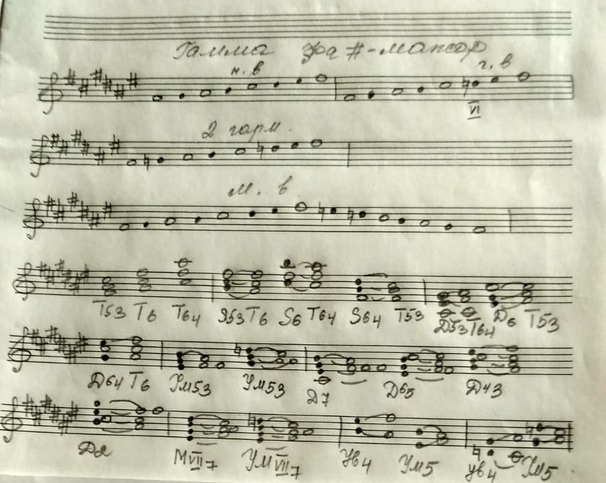 Гамма Фа #-мажор
н. в г. в
VI
2 гарм.
м. в.
Т53 Т6 Т64 S53 Т6 S6 Т64 S64 Т53 Д53 Т64 Д6 Т53
Д64 Т6 Ум53 Ум53 Д7 Д65 Д43
Д2 МVII7 УМVII7 Ув4 Ум5 Ув4 Ум5